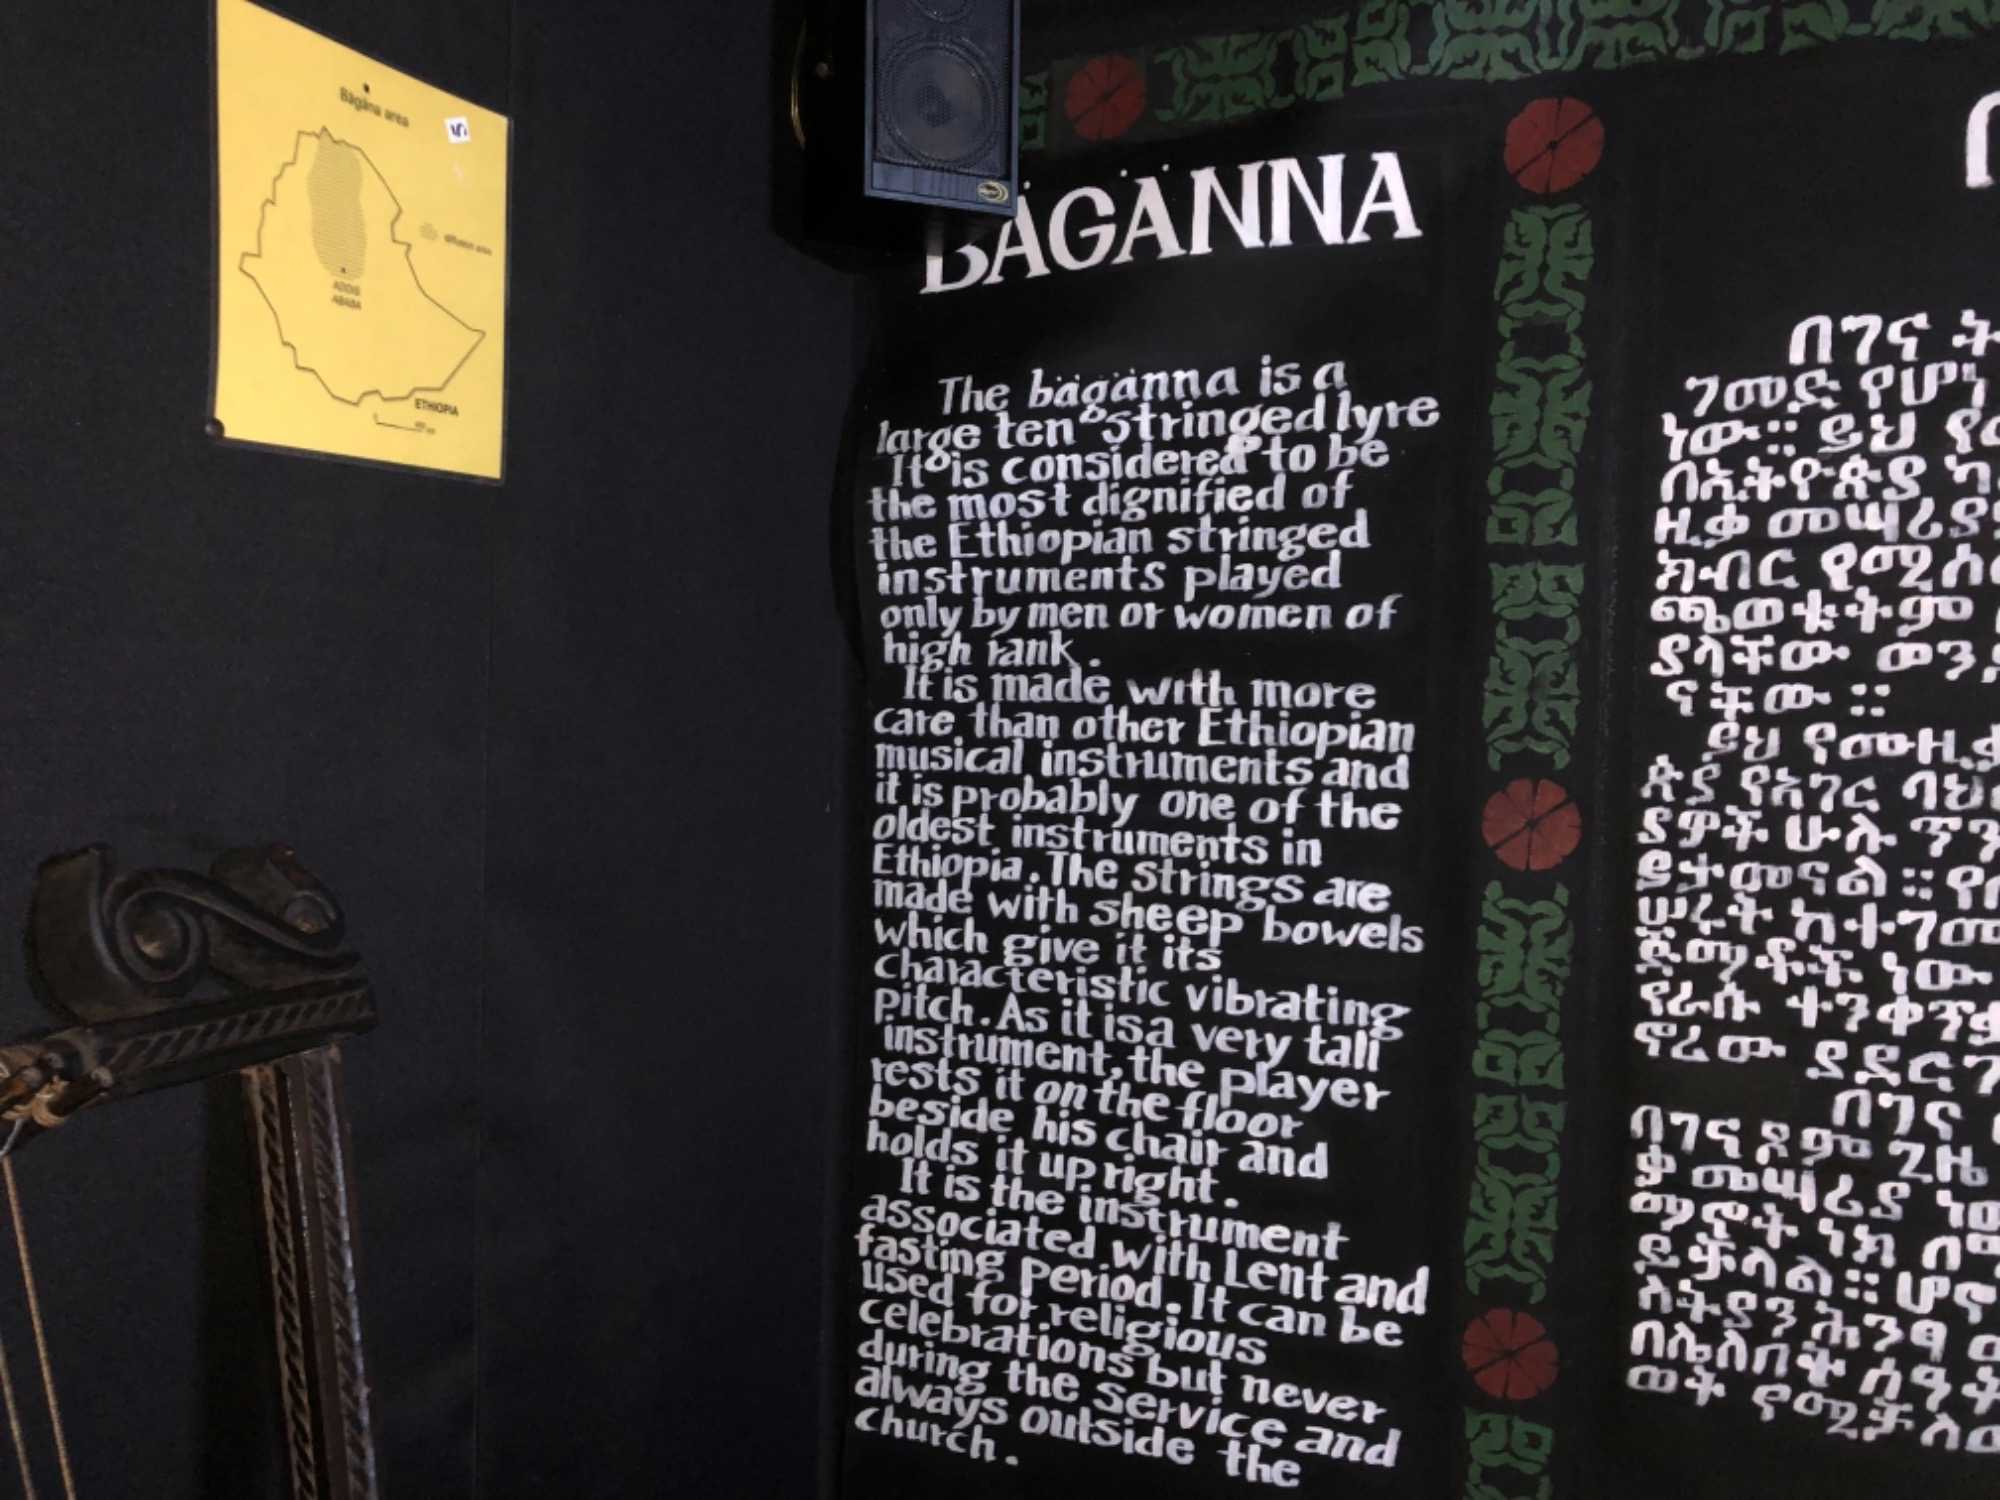 Bägäna area
diffusion area
ADDIS
ABABA
ETHIOPIA
BÄGÄNNA
The bägänna is a
large ten stringed lyre
It is considered to be
the most dignified of
the Ethiopian stringed
instruments played
only by men or women of
high rank.
It is made with more
care than other Ethiopian
musical instruments and
it is probably one of the
oldest instruments in
Ethiopia. The strings are
made with sheep bowels
which give it its
characteristic vibrating
pitch. As it is a very tall
instrument, the player
rests it on the floor
beside his chair and
holds it up right.
It is the instrument
associated with Lent and
fasting period. It can be
used for religious
celebrations but never
during the service and
always outside the
church.
በ
በገና ት
ገመድ የሆነ
ነው። ይህ የ
በኢትዮጵያ ካ
ዚቃ መሣሪያ
ክብር የሚሰ
ጫወቱትም
ያላቸው ወን
ናቸው ።
ይህ የሙዚቃ
ጵያ የአገር ባህ
ያዎች ሁሉ ጥን
ይታመናል ። የ
ሠሩት ከተገመ
ጅማቶች ነው
የራሱ ተንቀጥቃ
ኖረው ያደርገ
በገና
በገና ጾም ጊዜ
ቃ መሣሪያ ነው
ማኖት ነክ በ
ይቻላል ። ሆኖ
ስትያን ሕንፃ ው
በሌለበት ሰዓት
ወት የሚቻለው